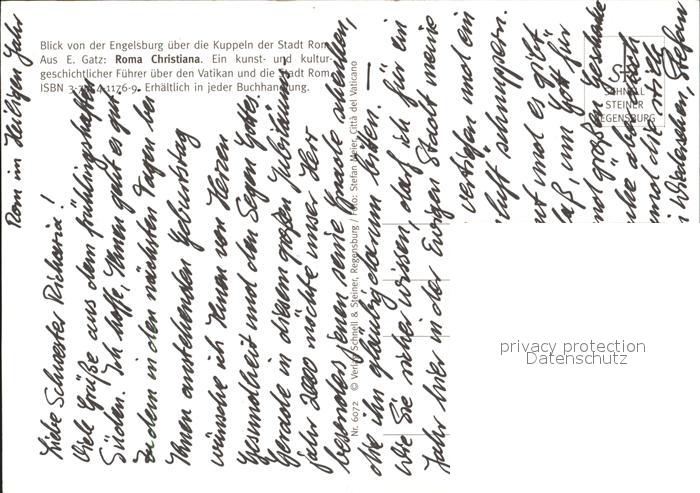 Blick von der Engelsburg über die Kuppeln der Stadt Rom
Aus E. Gatz: Roma Christiana. Ein kunst- und kultur-
geschichtlicher Führer über den Vatikan und die Stadt Rom
ISBN 3-7954-1176-9. Erhältlich in jeder Buchhandlung.
Nr. 6072 © Verlag Schnell & Steiner, Regensburg / Foto: Stefan Meier, Città del Vaticano
SCHNELL
STEINER
REGENSBURG
Rom im Heiligen Jahr
Liebe Schwester Richaria!
Viele Grüße aus dem frühlingshaften
Süden. Ich hoffe, Ihnen geht es gut.
Zu dem in den nächsten Tagen bei
Ihnen anstehenden Geburtstag
wünsche ich Ihnen von Herzen
Gesundheit und den Segen Gottes.
Gerade in diesem großen Jubiläums-
jahr 2000 möchte unser Herr
besonders jenen seine Gnade schenken,
die ihn gläubig darum bitten. —
Wie Sie sicher wissen, darf ich für ein
Jahr hier in der Ewigen Stadt meine
vertiefen und ein
luft schnuppern.
und es gibt
um Gott für
und großen Geschenke
und
Wiedersehen, Stefan
privacy protection
Datenschutz